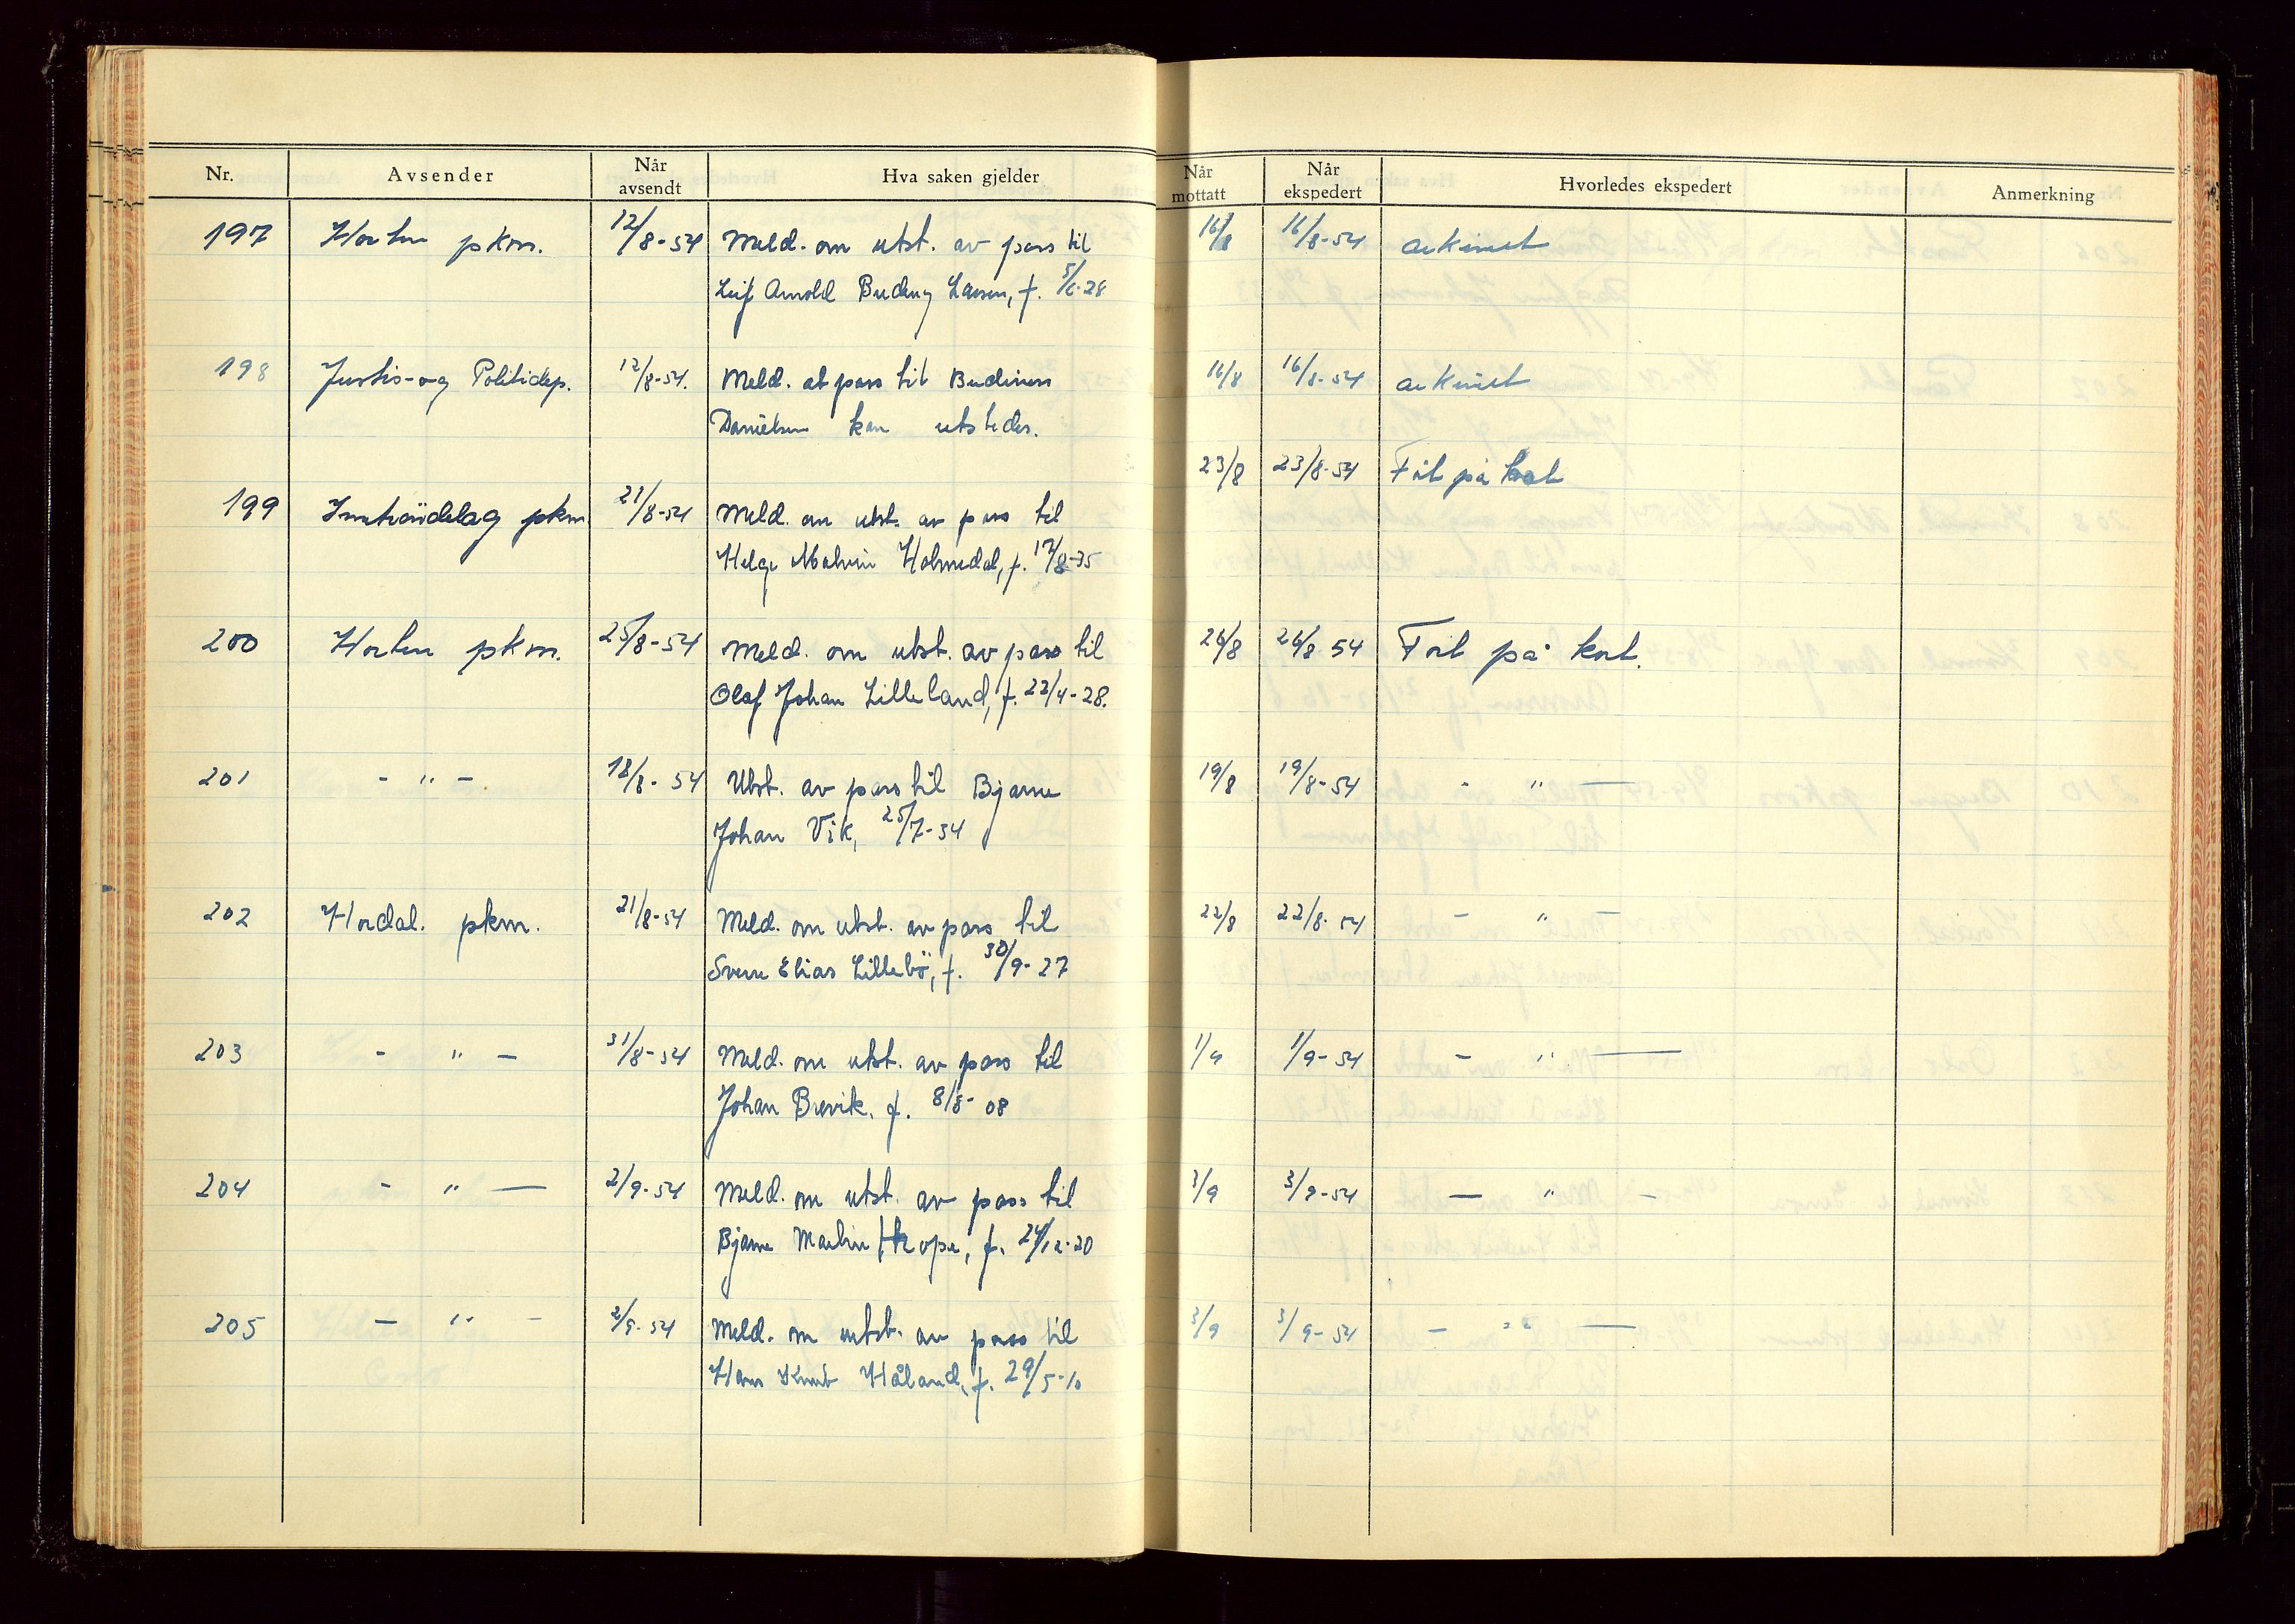 Nr. Avsender Når avsendt Hva saken gjelder Når mottatt Når ekspedert Hvorledes ekspedert Anmerkning
197 Horten pkm. 12/8-54 Meld. om utst. av pass til 16/8 16/8-54 arkivert
Leif Arnold Larsen, f. 5/6-28
198 Justis- og Politidep. 12/8-54. Meld. at pass til 16/8 16/8-54 arkivert
Danielsen kan utstedes.
23/8 23/8-54 Fört på kort
199 Inntröndelag pkm 21/8-54 Meld. om utst. av pass til
Helge Malvin Holmedal, f. 17/8-35
200 Horten pkm. 25/8-54 Meld. om utst. av pass til 26/8 26/8 54 Fört på kort.
Olaf Johan Lilleland, f. 22/4-28.
201 - " - 18/8-54 Utst. av pass til Bjarne 19/8 19/8-54 - " -
Johan Vik, 25/7-34
202 Hordal. pkm. 21/8-54 Meld. om utst. av pass til 22/8 22/8-54 - " -
Sverre Elias Lillebö, f. 30/9-27
203 - " - 31/8-54 Meld. om utst. av pass til 1/9 1/9-54 - " -
Johan Brevik, f. 8/8-08
204 - " - 2/9-54 Meld. om utst. av pass til 3/9 3/9-54 - " -
Bjarne Martin Hope, f. 24/12-20
205 - " - 2/9-54 Meld. om utst. av pass til 3/9 3/9-54 - " -
Hans Knut Håland, f. 29/5-10